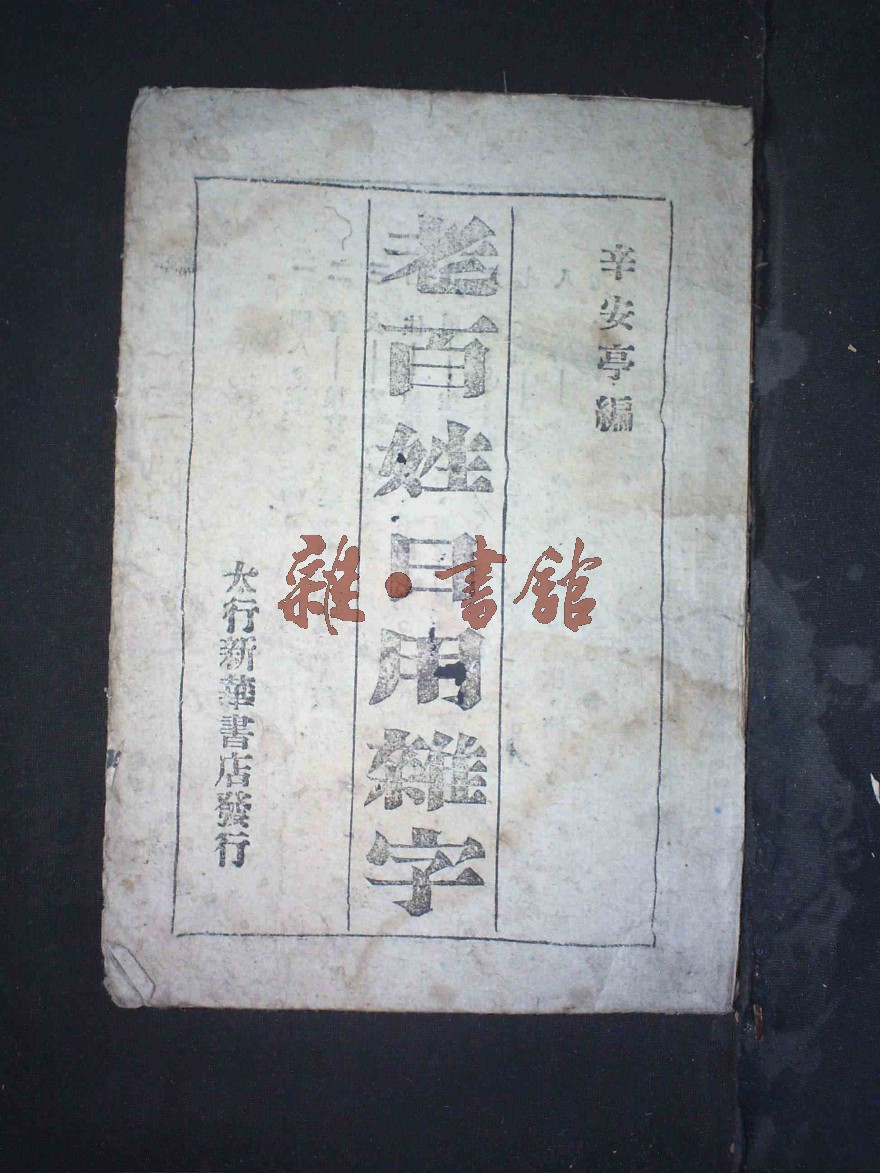 辛安亭編
老百姓日用雜字
太行新華書店發行
雜·書館